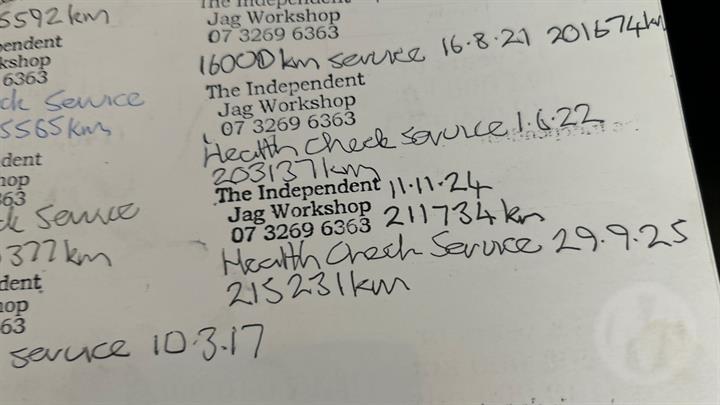 5592km
pendent
kshop
6363
ck Service
5565km
dent
hop
363
ck Service
377km
dent
hop
63
service 10.3.17
The Independent
Jag Workshop
07 3269 6363
16000km service 16.8.21 201674km
The Independent
Jag Workshop
07 3269 6363
Health Check service 1.6.22
203137km
The Independent 11.11.24
Jag Workshop 211734km
07 3269 6363
Health Check Service 29.9.25
215231km